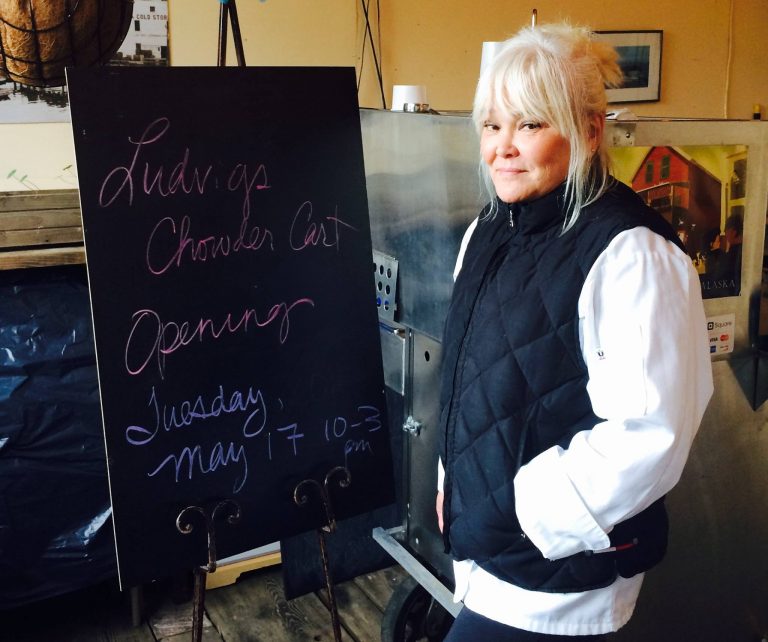 COLD STOR
Ludvigs
Chowder Cart
Opening
Tuesday,
May 17 10-3
pm
ALASKA
Square
VISA